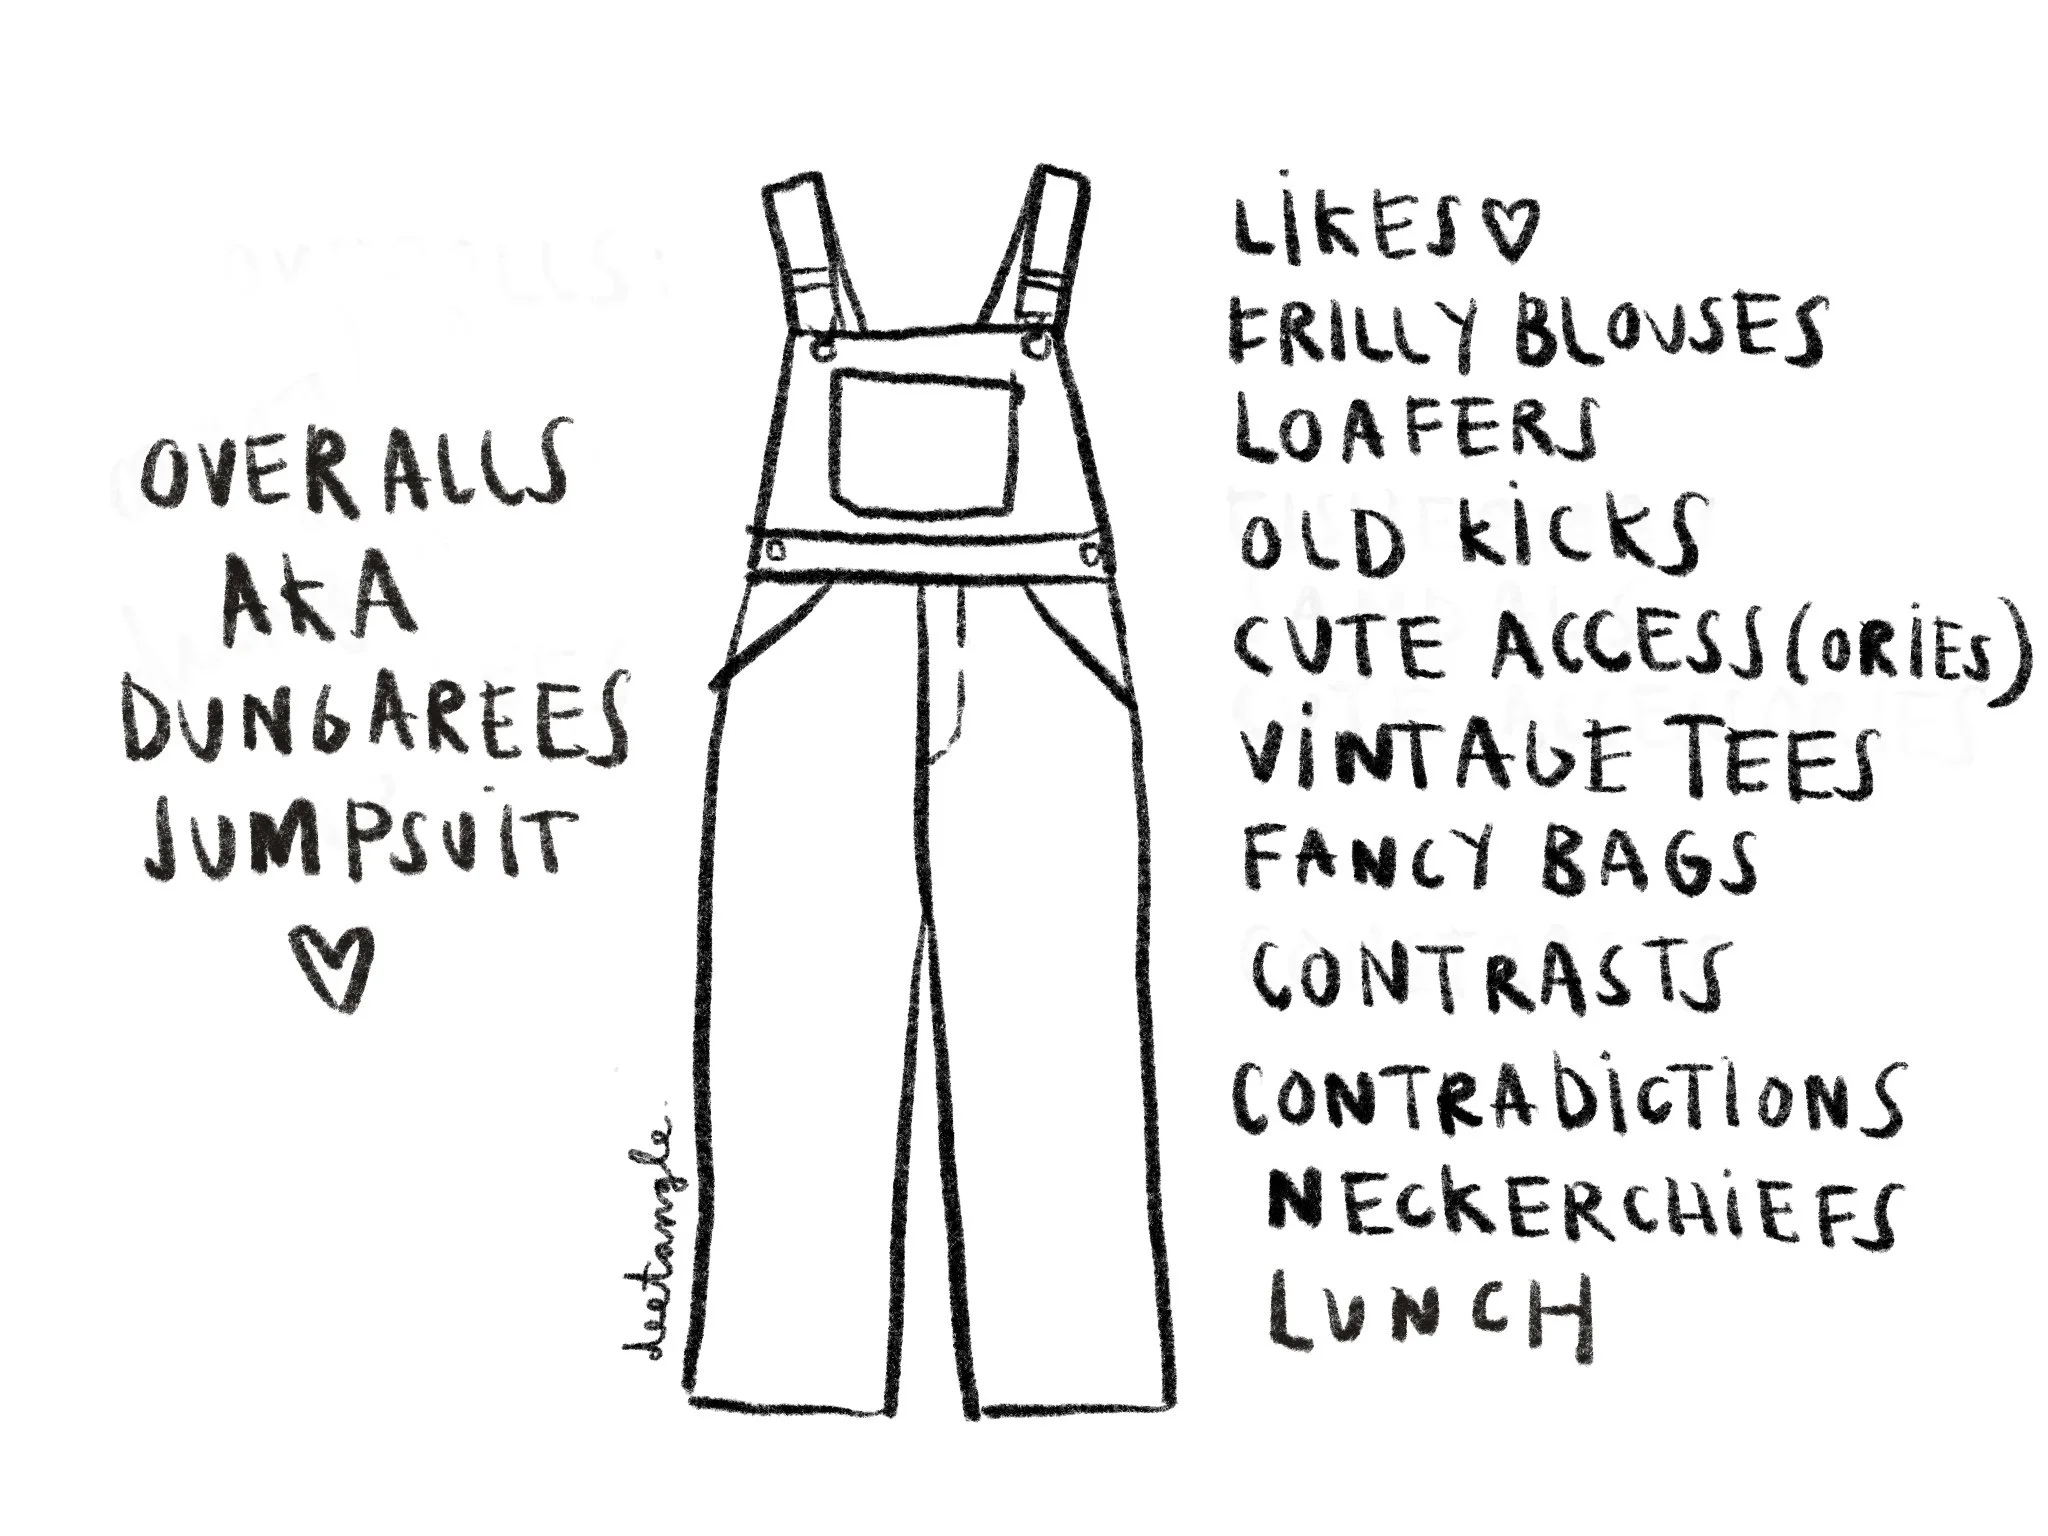 OVERALLS
AKA
DUNGAREES
JUMPSUIT
LIKES
FRILLY BLOUSES
LOAFERS
OLD KICKS
CUTE ACCESS(ORIES)
VINTAGE TEES
FANCY BAGS
CONTRASTS
CONTRADICTIONS
NECKERCHIEFS
LUNCH
deetangle.